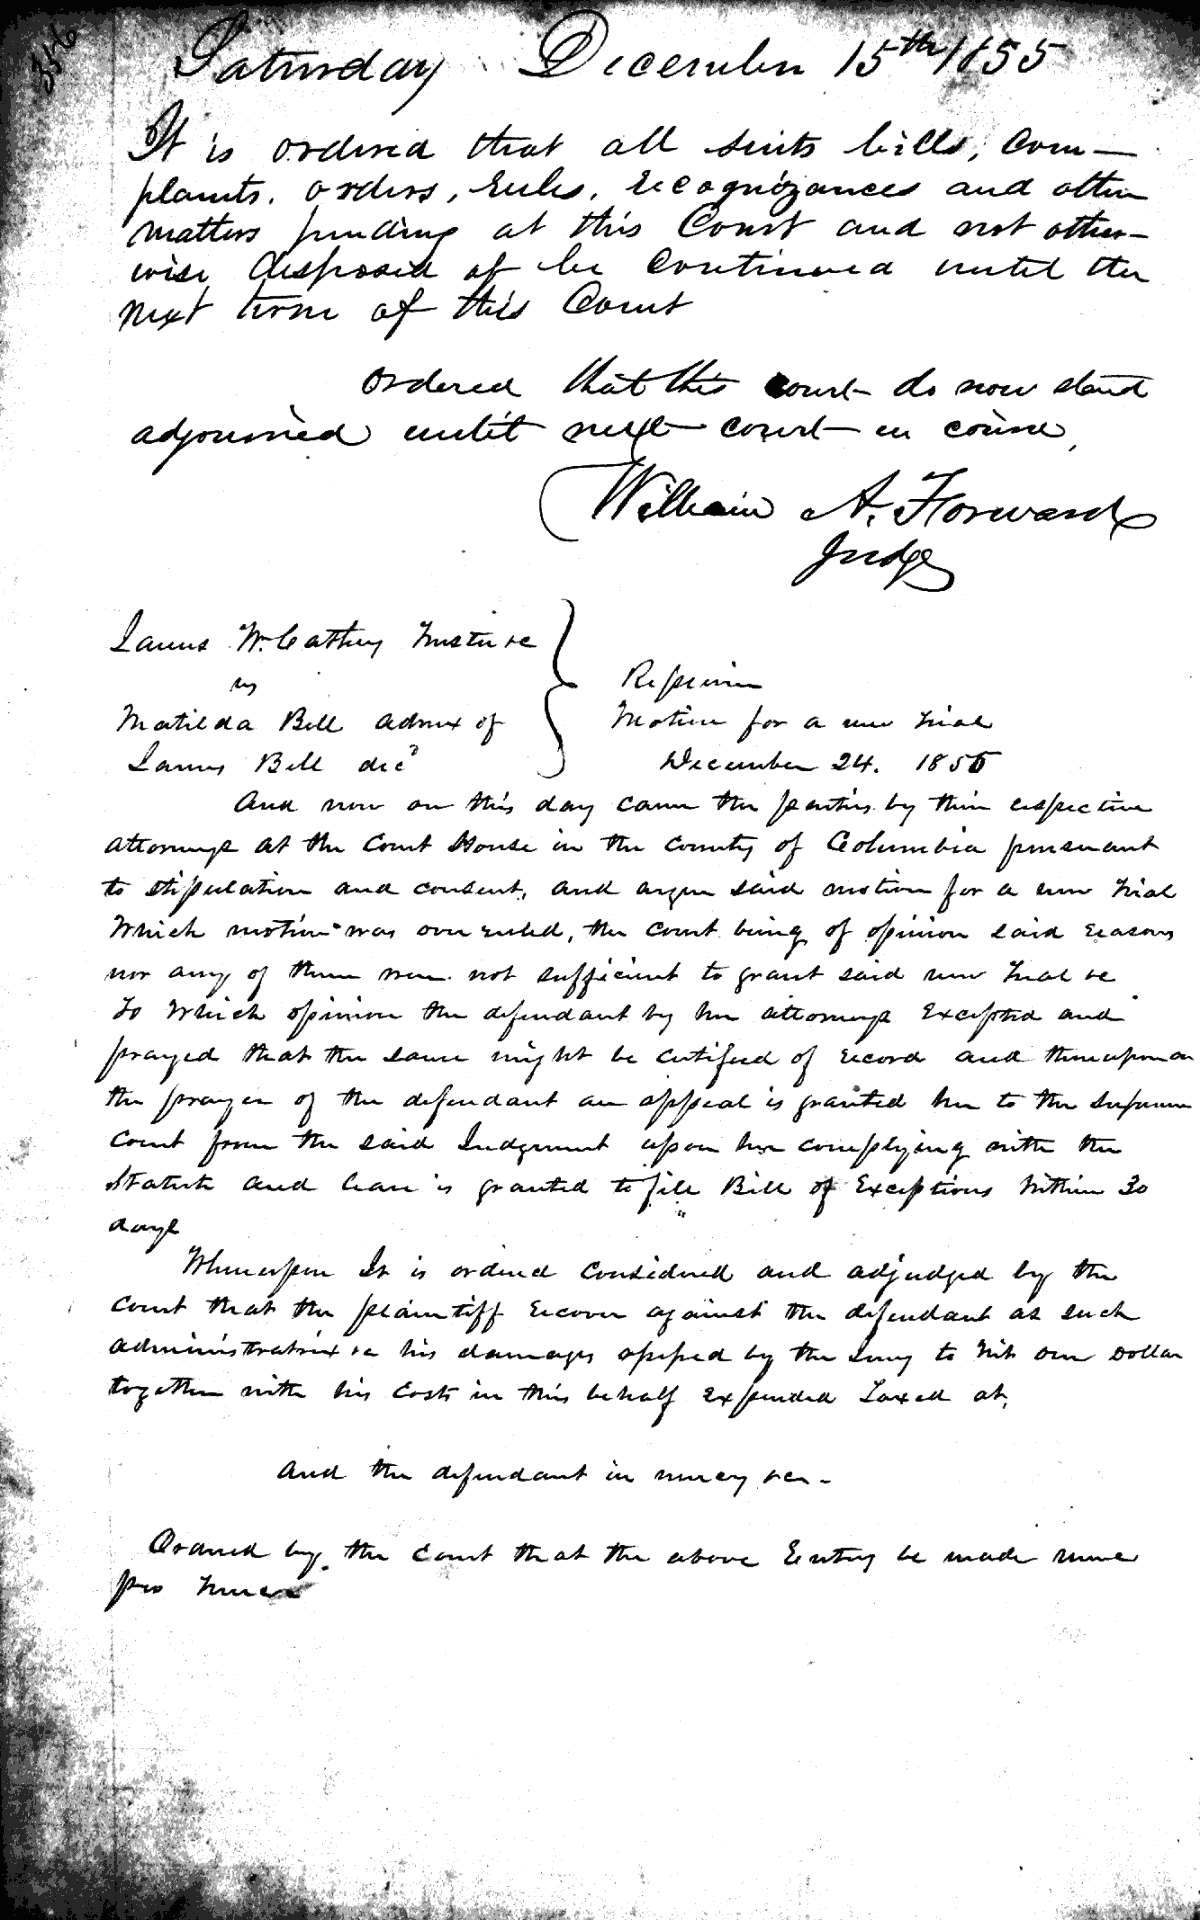 356
Saturday December 15th 1855
It is ordered that all suits bills, com-
plaints, orders, rules, recognizances and other
matters pending at this Court and not other-
wise disposed of be continued until the
next term of this Court
ordered that this court do now stand
adjourned until next court in course,
William A. Forward
Judge
James W. Cathey Trustee &c
vs
Matilda Bell admx of
James Bell decd
Replevin
Motion for a new trial
December 24. 1855
And now on this day came the parties by their respective
attorneys at the Court House in the county of Columbia pursuant
to stipulation and consent, and argue said motion for a new trial
Which motion was over ruled, the court being of opinion said reasons
nor any of them were not sufficient to grant said new trial &c
To Which opinion the defendant by her attorneys Excepted and
prayed that the same might be certified of record and thereupon on
the prayer of the defendant an appeal is granted her to the supreme
Court from the said Judgment upon her complying with the
Statute and leave is granted to file Bill of Exceptions Within 30
days
Whereupon It is ordered considered and adjudged by the
Court that the plaintiff recover against the defendant as such
administratrix &c his damages assessed by the Jury to Wit One Dollar
together with his Costs in this behalf Expended Taxed at,
And the defendant in mercy &c.
Ordered by the Court that the above Entry be made nunc
pro tunc